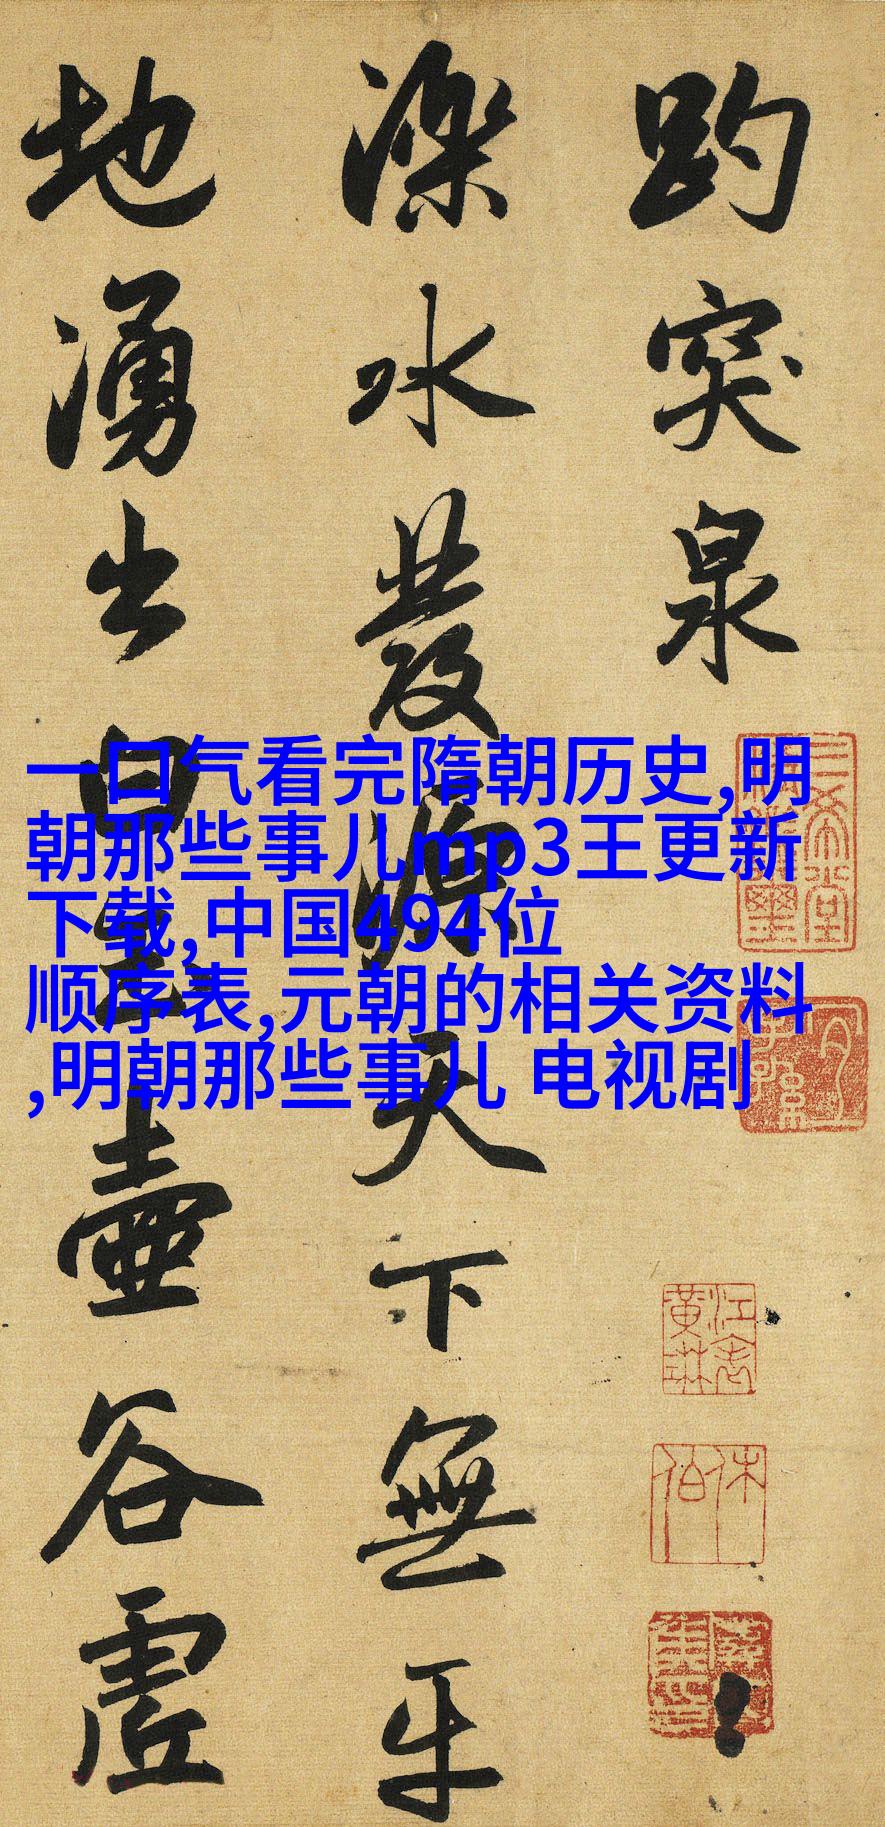 趵突泉
濼水發源天下無
地湧出白玉壺谷虛
一口气看完隋朝历史,明
朝那些事儿mp3王更新
下载,中国494位
顺序表,元朝的相关资料
,明朝那些事儿 电视剧
三希堂